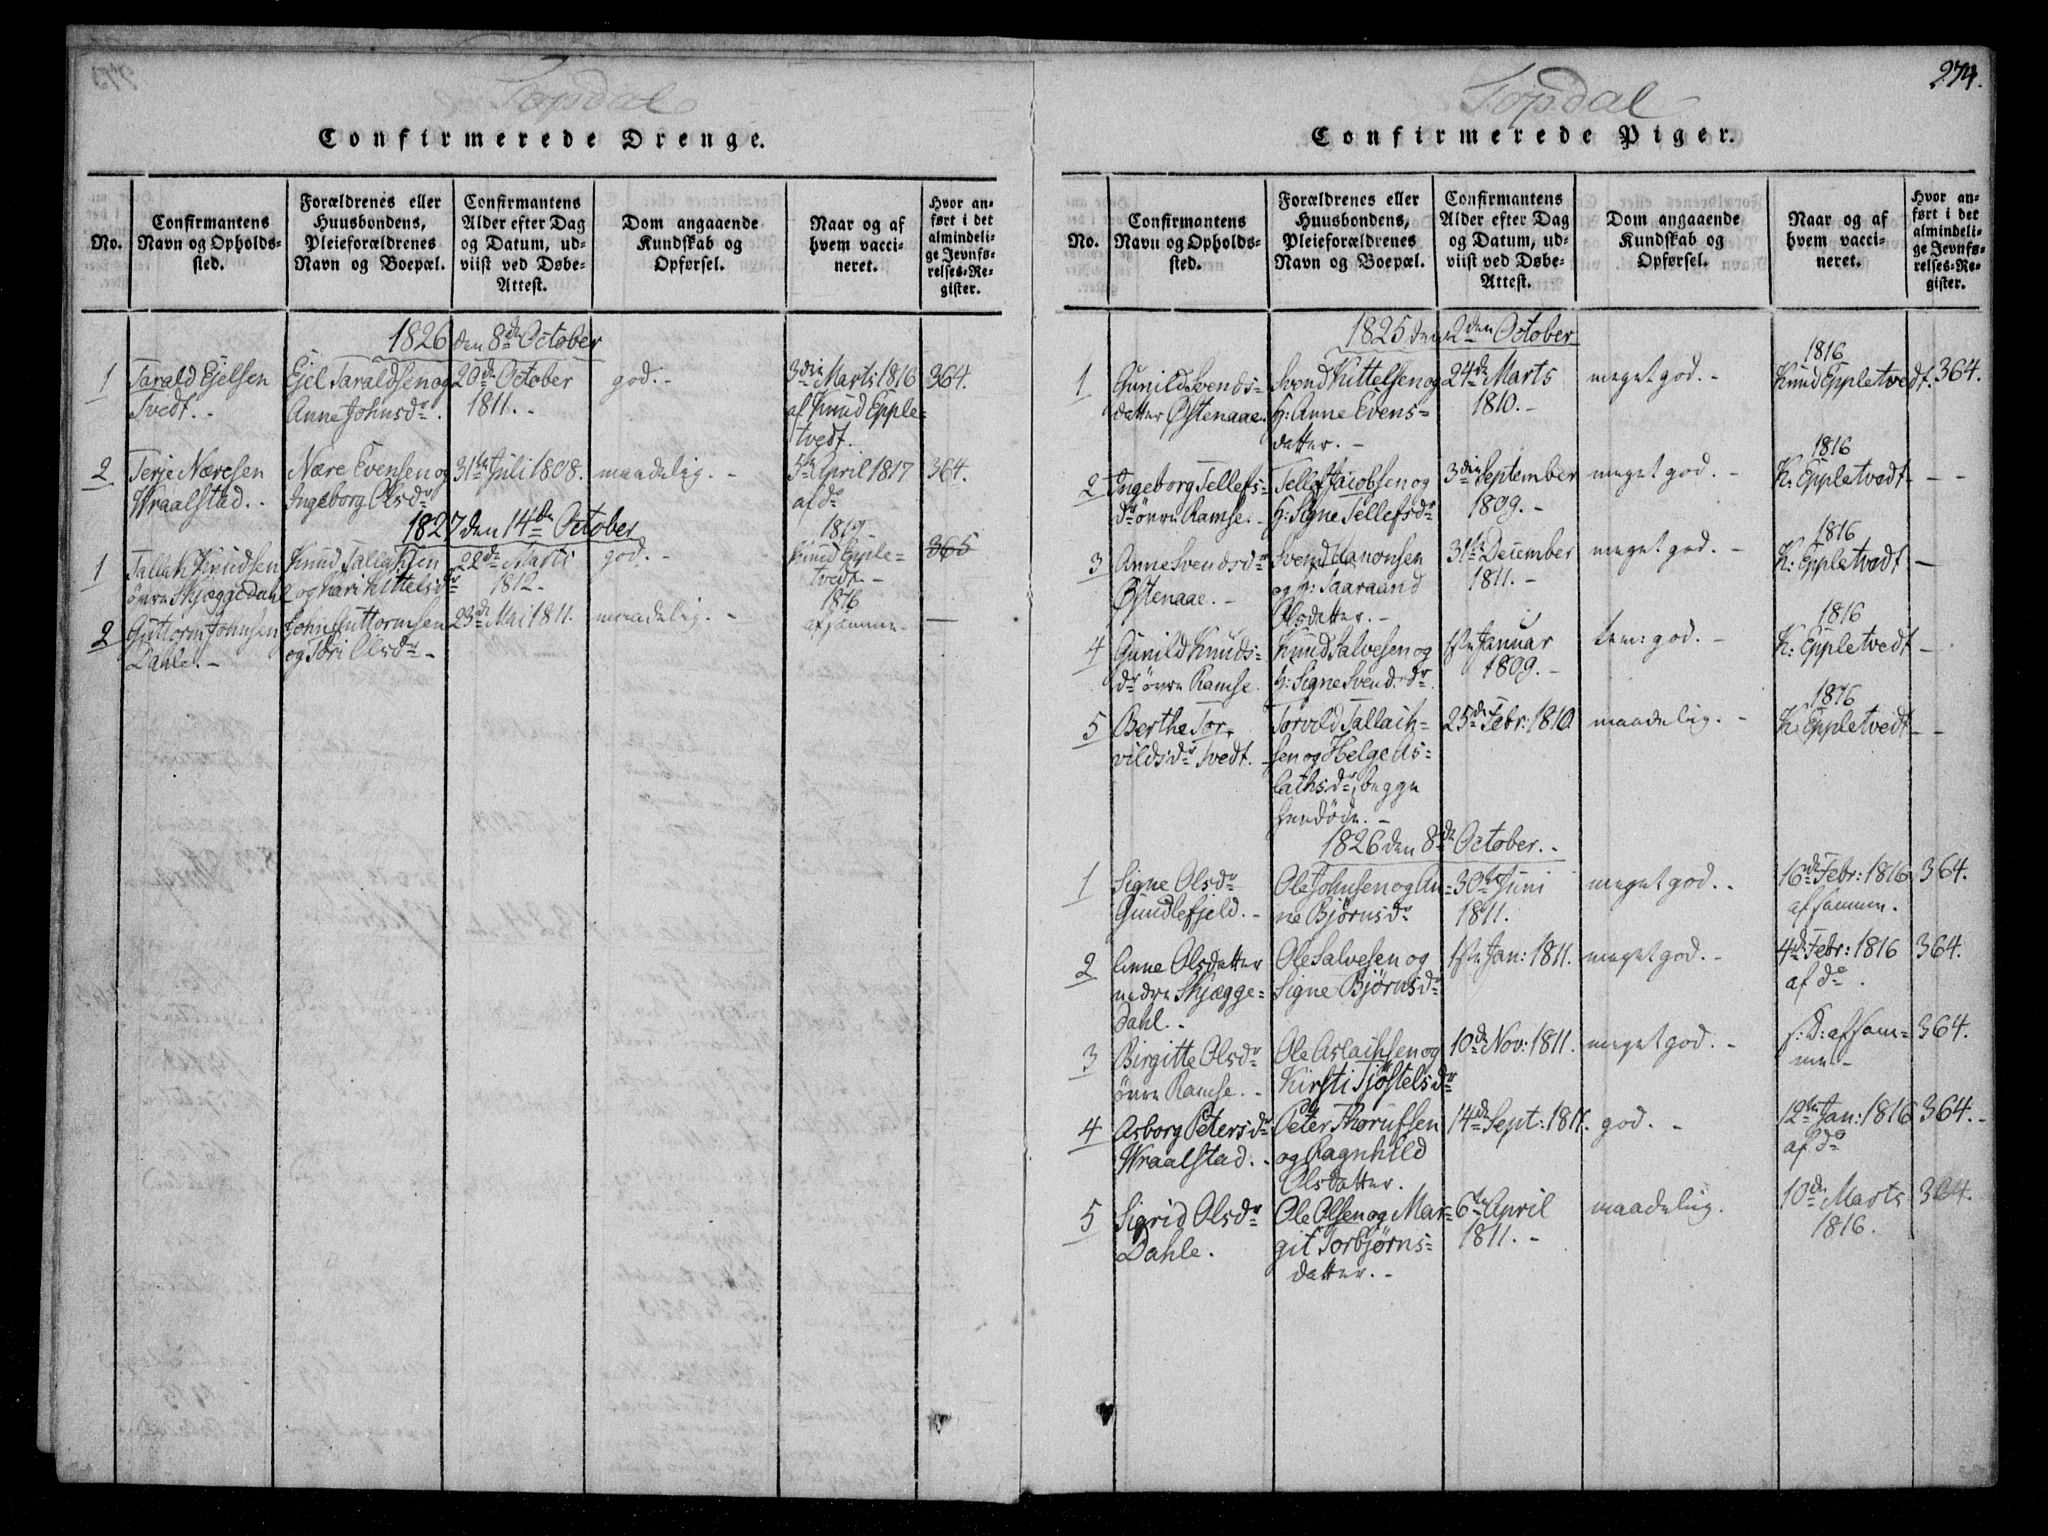 Topdal
Confirmerede Drenge.
No.
Confirmantens
Navn og Opholds-
sted.
Forældrenes eller
Huusbondens,
Pleieforældrenes
Navn og Boepæl.
Confirmantens
Alder efter Dag
og Datum, ud-
viist ved Døbe-
Attest.
Dom angaaende
Kundskab og
Opførsel.
Naar og af
hvem vacci-
neret.
Hvor an-
ført i det
almindeli-
ge Jevnfø-
relses-Re-
gister.
1826 den 8de October
1
Tarald Ejelsen
Tvedt. -
Ejel Taraldsen og
Anne Johnsdr.
20de October
1811. -
god. -
3die Marts 1816
af Knud Epple-
tvedt.
364.
2
Terje Næresen
Wraalstad. -
Nære Evensen og
Ingeborg Olsdr
31te Juli 1808.
maadelig. -
5te April 1817
af do
364.
1827 den 14de October
1
Tallak Knudsen
övre Skjæggedahl
Knud Tallaksen
og Kari Kittelsdr
22de Marts
1812. -
god. -
1817
Knud Epple-
tvedt. -
365
2
Guttorm Johnsen
Dahle. -
John Guttormsen
og Töri Olsdr -
23de Mai 1811.
maadelig. -
1816
af samme. -
—
274.
Topdal
Confirmerede Piger.
No.
Confirmantens
Navn og Opholds-
sted.
Forældrenes eller
Huusbondens,
Pleieforældrenes
Navn og Boepæl.
Confirmantens
Alder efter Dag
og Datum, ud-
viist ved Døbe-
Attest.
Dom angaaende
Kundskab og
Opførsel.
Naar og af
hvem vacci-
neret.
Hvor an-
ført i det
almindeli-
ge Jevnfø-
relses-Re-
gister.
1825 den 2den October
1
Gunild Svends-
datter Østenaae.
Svend Kittelsen og
H: Anne Evens-
datter. -
24de Marts
1810. -
meget god. -
1816
Knud Eppletvedt.
364.
2
Ingeborg Tellefs-
dr övre Ramse. -
Tellef Jacobsen og
H: Signe Tellefsdr
3die September
1809. -
meget god. -
1816
K: Eppletvedt
- -
3
Anne Svendsdr
Østenaae. -
Svend Hanonsen
og H: Taaraand
Olsdatter. -
31te December
1811. -
meget god. -
1816
K: Eppletvedt
-
4
Gunild Knuds-
dr övre Ramse.
Knud Salvesen og
H: Signe Svendsdr.
1ste Januar
1809. -
tem: god. -
1816
K: Eppletvedt
-
5
Berthe Tor-
vildsdr Tvedt. -
Torvild Tallach-
sen og Helge As-
lachsdr, begge
hendöde. -
25de Febr: 1810
maadelig. -
1816
K: Eppletvedt
- -
1826 den 8de October. -
1
Signe Olsdr
Gundlefjeld. -
Ole Johnsen og An-
ne Bjørnsdr
30te Juni
1811.
meget god. -
16de Febr: 1816
af samme.
364.
2
Anne Olsdatter
nedre Skjægge-
dahl. -
Ole Salvesen og
Signe Bjørnsdr
1ste Jan: 1811.
meget god. -
4de Febr: 1816
af do.
364.
3
Birgitte Olsdr
övre Ramse. -
Ole Aslachsen og
Kirsti Tjöstelsdr
10de Nov: 1811.
meget god. -
s: D: af sam-
me. -
364.
4
Asborg Petersdr
Wraalstad. -
Peter Thorufsen
og Ragnhild
Olsdatter.
14de Sept: 1811.
god. -
12te Jan: 1816
af do
364. -
5
Sigrid Olsdr
Dahle.
Ole Olsen og Mar-
git Torbjørns-
datter. -
6te April
1811. -
maadelig.
10de Marts
1816.
364.